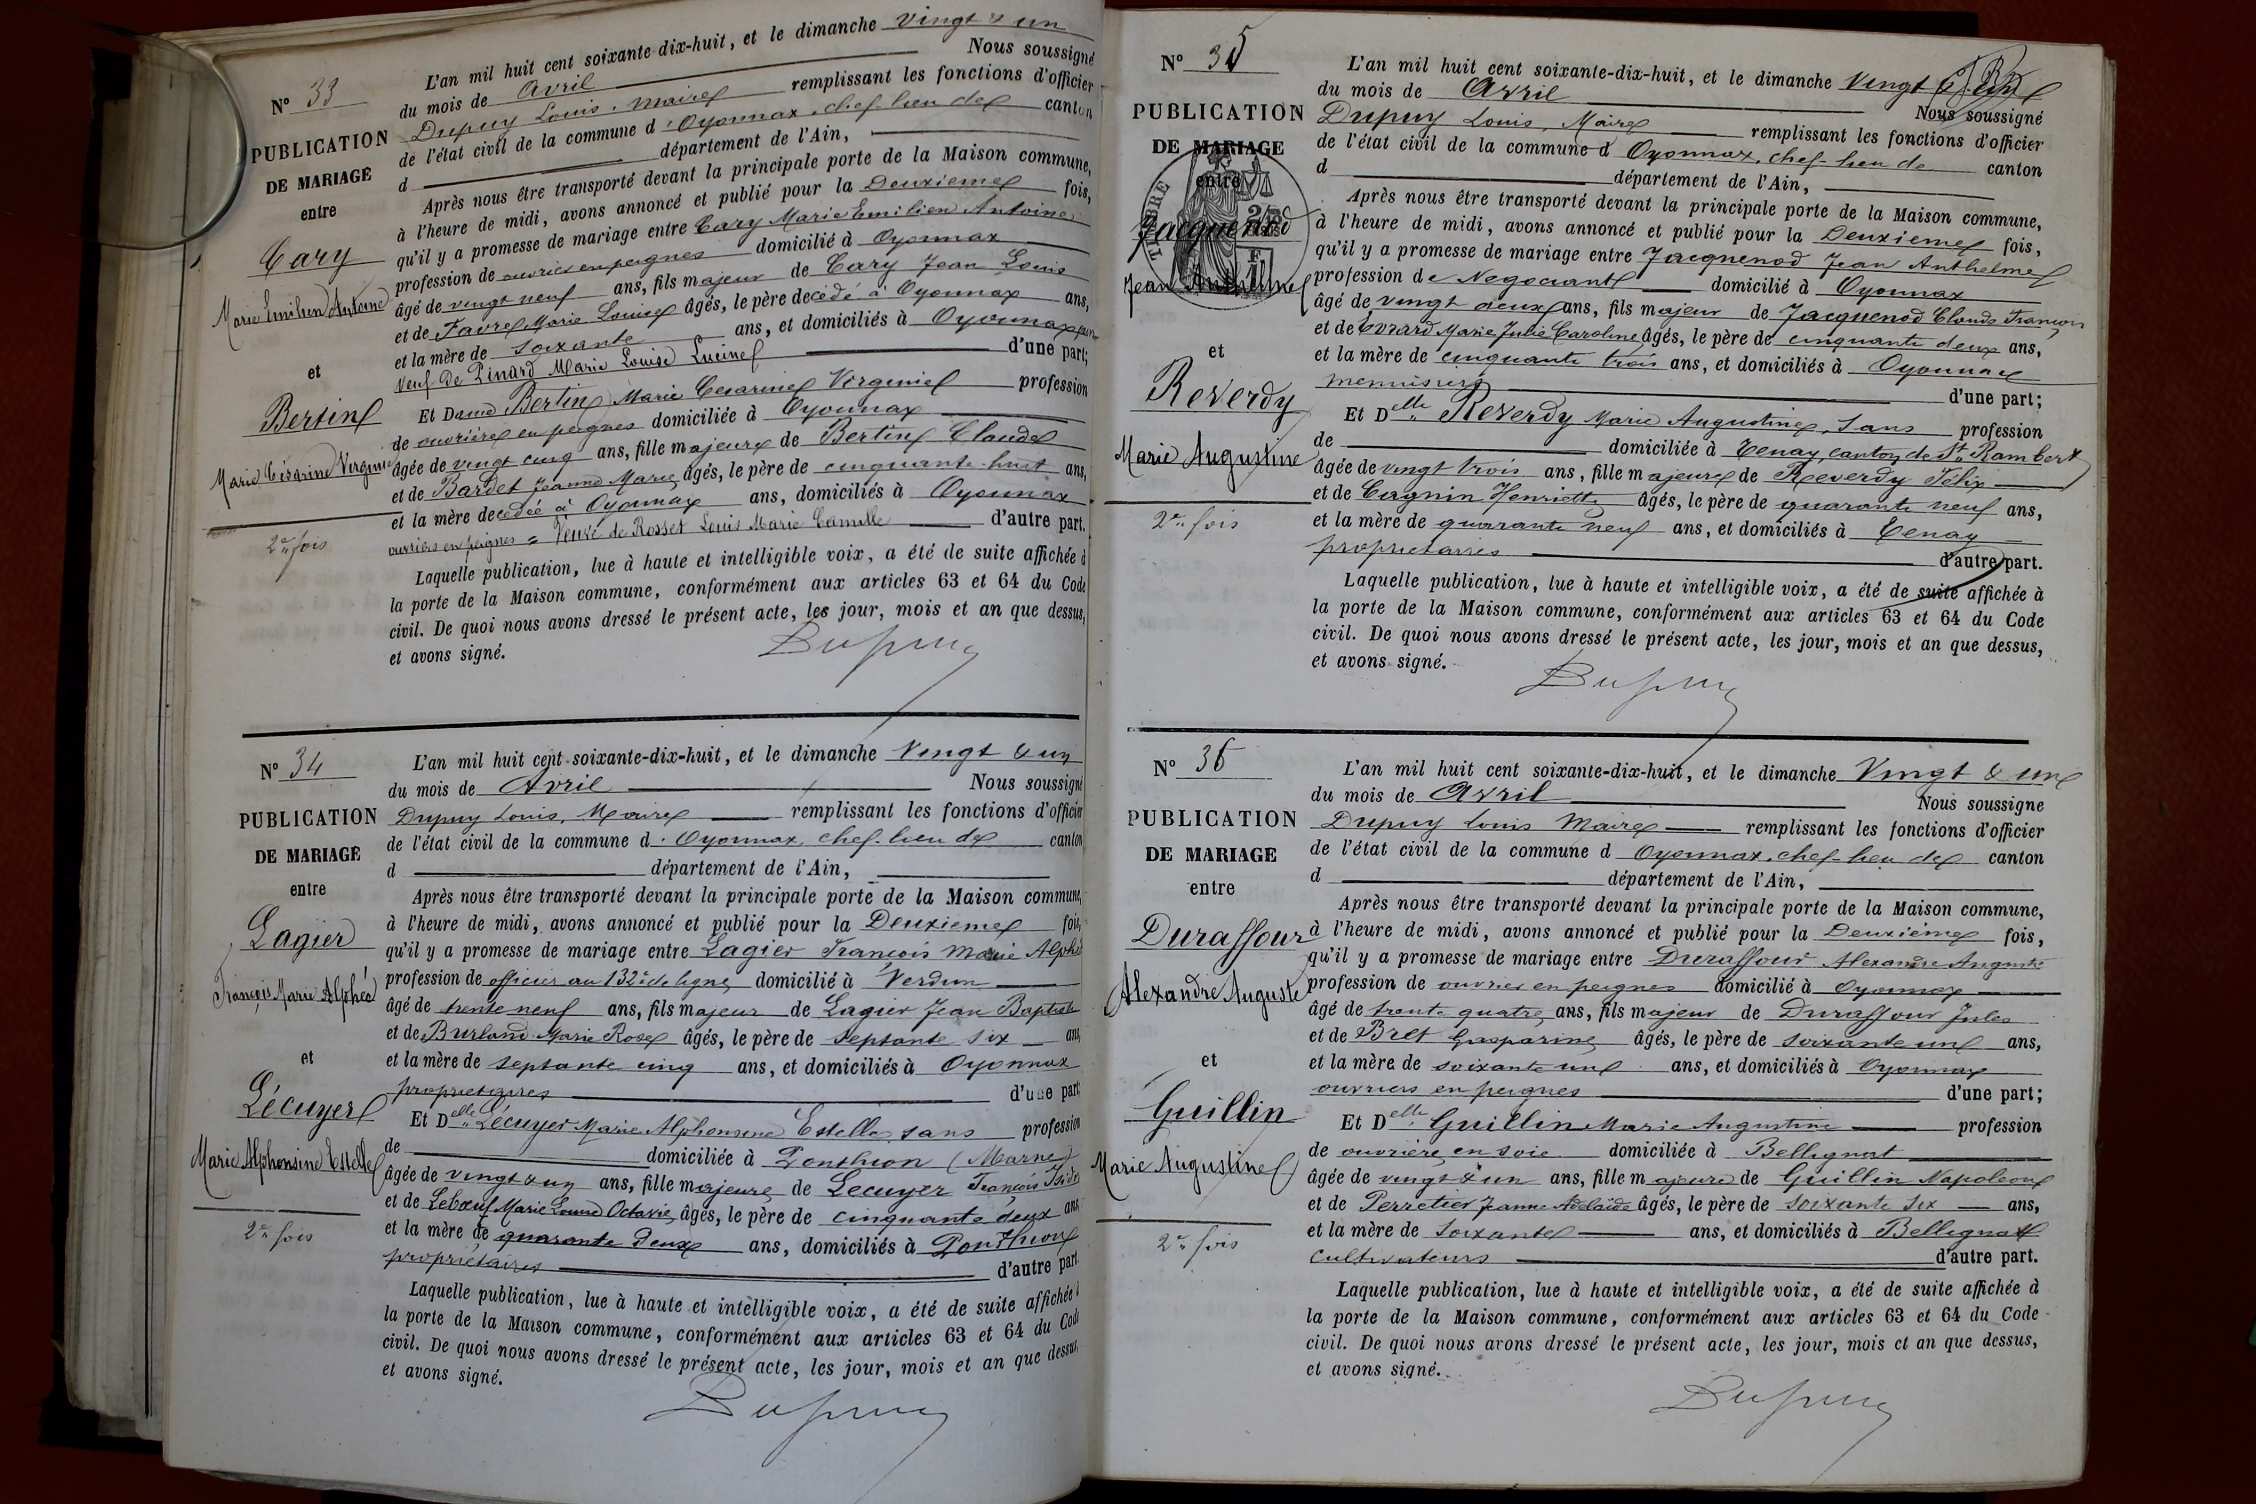 N° 33
PUBLICATION
DE MARIAGE
entre
Cary
Marie Emilien Antoine
et
Bertin
Marie Césarine Virginie
2e fois
L'an mil huit cent soixante-dix-huit, et le dimanche vingt & un
du mois de Avril Nous soussigné
Dupuy Louis, Maire remplissant les fonctions d'officier
de l'état civil de la commune d'Oyonnax, chef-lieu de canton
d département de l'Ain,
Après nous être transporté devant la principale porte de la Maison commune,
à l'heure de midi, avons annoncé et publié pour la Deuxieme fois,
qu'il y a promesse de mariage entre Cary Marie Emilien Antoine
profession de ouvrier en peignes domicilié à Oyonnax
âgé de vingt neuf ans, fils majeur de Cary Jean Louis
et de Favre Marie Louise âgés, le père decédé à Oyonnax ans,
et la mère de soixante ans, et domiciliés à Oyonnax
veuf de Pinard Marie Louise Lucine d'une part;
Et Dame Bertin Marie Cesarine Virginie profession
de ouvrière en peignes domiciliée à Oyonnax
âgée de vingt cinq ans, fille majeure de Bertin Claude
et de Bardet Jeanne Marie, âgés, le père de cinquante-huit ans,
et la mère decédée à Oyonnax ans, domiciliés à Oyonnax
ouvriers en peignes = Veuve de Rosset Louis Marie Camille d'autre part.
Laquelle publication, lue à haute et intelligible voix, a été de suite affichée à
la porte de la Maison commune, conformément aux articles 63 et 64 du Code
civil. De quoi nous avons dressé le présent acte, les jour, mois et an que dessus,
et avons signé.
Dupuy
N° 34
PUBLICATION
DE MARIAGE
entre
Lagier
François Marie Alphée
et
Lécuyer
Marie Alphonsine Estelle
2e fois
L'an mil huit cent soixante-dix-huit, et le dimanche Vingt & un
du mois de Avril Nous soussigné
Dupuy Louis, Maire remplissant les fonctions d'officier
de l'état civil de la commune d'Oyonnax, chef-lieu de canton
d département de l'Ain,
Après nous être transporté devant la principale porte de la Maison commune,
à l'heure de midi, avons annoncé et publié pour la Deuxieme fois,
qu'il y a promesse de mariage entre Lagier François Marie Alphée
profession de officier au 132e de ligne, domicilié à Verdun
âgé de trente neuf ans, fils majeur de Lagier Jean Baptiste
et de Burland Marie Rose âgés, le père de septante six ans,
et la mère de septante cinq ans, et domiciliés à Oyonnax
proprietaires d'une part
Et Delle Lécuyer Marie Alphonsine Estelle, sans profession
de domiciliée à Ponthion (Marne)
âgée de vingt & un ans, fille majeure de Lecuyer François Isidore
et de Lebœuf Marie Louise Octavie, âgés, le père de cinquante deux ans
et la mère de quarante deux ans, domiciliés à Ponthion
propriétaires d'autre part
Laquelle publication, lue à haute et intelligible voix, a été de suite affichée à
la porte de la Maison commune, conformément aux articles 63 et 64 du Code
civil. De quoi nous avons dressé le présent acte, les jour, mois et an que dessus,
et avons signé.
Dupuy
N° 35
PUBLICATION
DE MARIAGE
entre
TIMBRE
Jacquenod
Jean Anthelme
et
Reverdy
Marie Augustine
2e fois
L'an mil huit cent soixante-dix-huit, et le dimanche Vingt & un
du mois de Avril Nous soussigné
Dupuy Louis, Maire remplissant les fonctions d'officier
de l'état civil de la commune d Oyonnax, chef-lieu de canton
d département de l'Ain,
Après nous être transporté devant la principale porte de la Maison commune,
à l'heure de midi, avons annoncé et publié pour la Deuxieme fois,
qu'il y a promesse de mariage entre Jacquenod Jean Anthelme
profession de Negociant domicilié à Oyonnax
âgé de vingt deux ans, fils majeur de Jacquenod Claude François
et de Evrard Marie Julie Caroline, âgés, le père de cinquante deux ans,
et la mère de cinquante trois ans, et domiciliés à Oyonnax
menuisiers d'une part;
Et Delle Reverdy Marie Augustine, sans profession
de domiciliée à Tenay, canton de St Rambert
âgée de vingt trois ans, fille majeure de Reverdy Félix
et de Cagnin Henriette âgés, le père de quarante neuf ans,
et la mère de quarante neuf ans, et domiciliés à Tenay
proprietaires d'autre part.
Laquelle publication, lue à haute et intelligible voix, a été de suite affichée à
la porte de la Maison commune, conformément aux articles 63 et 64 du Code
civil. De quoi nous avons dressé le présent acte, les jour, mois et an que dessus,
et avons signé.
Dupuy
N° 36
PUBLICATION
DE MARIAGE
entre
Duraffour
Alexandre Auguste
et
Guillin
Marie Augustine
2e fois
L'an mil huit cent soixante-dix-huit, et le dimanche Vingt & un
du mois de Avril Nous soussigné
Dupuy Louis Maire remplissant les fonctions d'officier
de l'état civil de la commune d Oyonnax, chef-lieu de canton
d département de l'Ain,
Après nous être transporté devant la principale porte de la Maison commune,
à l'heure de midi, avons annoncé et publié pour la Deuxième fois,
qu'il y a promesse de mariage entre Duraffour Alexandre Auguste
profession de ouvrier en peignes domicilié à Oyonnax
âgé de trente quatre ans, fils majeur de Duraffour Jules
et de Bret Gasparine âgés, le père de soixante un ans,
et la mère de soixante un ans, et domiciliés à Oyonnax
ouvriers en peignes d'une part;
Et Delle Guillin Marie Augustine profession
de ouvrière en soie domiciliée à Bellignat
âgée de vingt & un ans, fille majeure de Guillin Napoleon
et de Perretier Jeanne Adelaïde âgés, le père de soixante six ans,
et la mère de soixante ans, et domiciliés à Bellignat
cultivateurs d'autre part.
Laquelle publication, lue à haute et intelligible voix, a été de suite affichée à
la porte de la Maison commune, conformément aux articles 63 et 64 du Code
civil. De quoi nous avons dressé le présent acte, les jour, mois et an que dessus,
et avons signé.
Dupuy